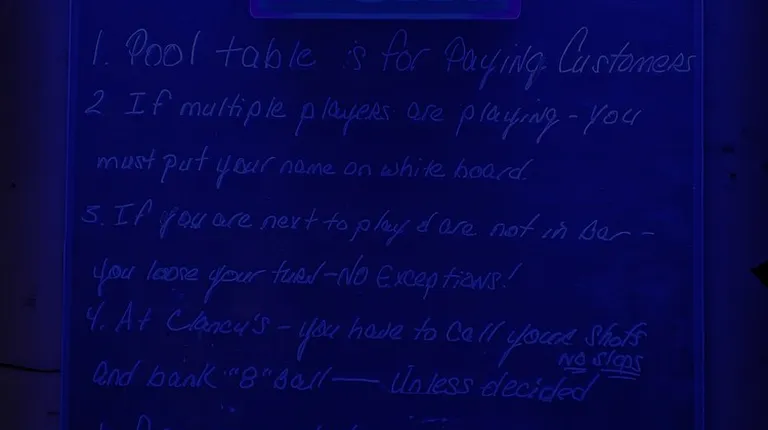 1. Pool table is for Paying Customers
2 If multiple players are playing - you
must put your name on white board.
3. If you are next to play & are not in bar -
you loose your turn - NO Exceptions!
4. At Clancy's - you have to call youre shots
NO Slops
and bank "8" Ball — Unless decided